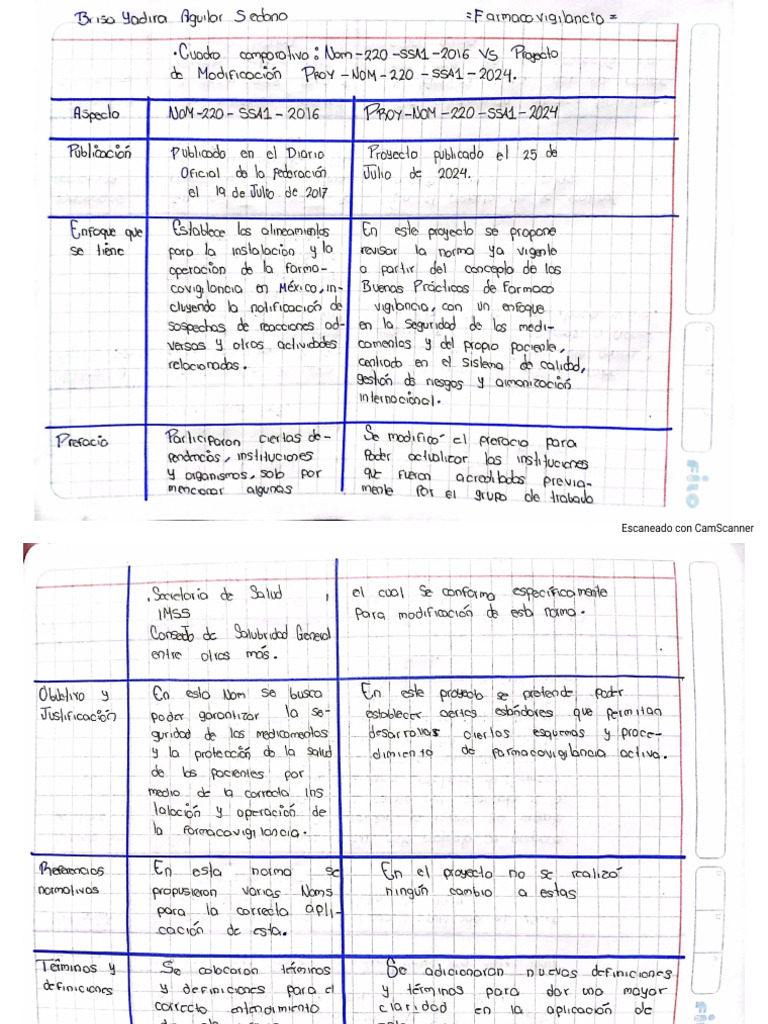 Brisa Yadira Aguilar Sedano
=Farmacovigilancia=
·Cuadro comparativo: Nom-220-SSA1-2016 VS Proyecto
de Modificación PROY-NOM-220-SSA1-2024.
Aspecto
NOM-220-SSA1-2016
PROY-NOM-220-SSA1-2024
Publicación
Publicado en el Diario
Oficial de la Federación
el 19 de Julio de 2017
Proyecto publicado el 25 de
Julio de 2024.
Enfoque que
se tiene
Establece los alineamientos
para la instalación y la
operación de la farma-
covigilancia en México, in-
cluyendo la notificación de
sospechas de reacciones ad-
versas y otras actividades
relacionadas.
En este proyecto se propone
revisar la norma ya vigente
a partir del concepto de las
Buenas Prácticas de Farmaco
vigilancia, con un enfoque
en la seguridad de los medi-
camentos y del propio paciente,
centrado en el sistema de calidad,
gestión de riesgos y armonización
internacional.
Prefacio
Participaron ciertas de-
pendencias, instituciones
y organismos, solo por
mencionar algunas
Se modificó el prefacio para
Poder actualizar las instituciones
que fueron acreditadas previa-
mente Por el grupo de trabajo
fino
Escaneado con CamScanner
.Secretaria de Salud,
IMSS
Consejo de Salubridad General
entre otros más.
el cual se conforma específicamente
Para modificación de esta norma.
Objetivo y
Justificación
En esta Nom se busca
poder garantizar la se-
guridad de los medicamentos
y la protección de la salud
de los pacientes por
medio de la correcta ins
talación y operación de
la farmacovigilancia.
En este proyecto se pretende poder
establecer estándores que permitan
desarrollas ciertos esquemas y proce-
dimiento de farmacovigilancia activa.
Referencias
normativas
En esta norma se
propusieron varias Noms
para la correcta apli-
cación de esta.
En el proyecto no se realizó
ningún cambio a estas
Términos y
definiciones
Se colocaron términos
y definiciones para el
correcto entendimiento
Se adicionaron nuevas definiciones
y términos para dar una mayor
claridad en la aplicación de